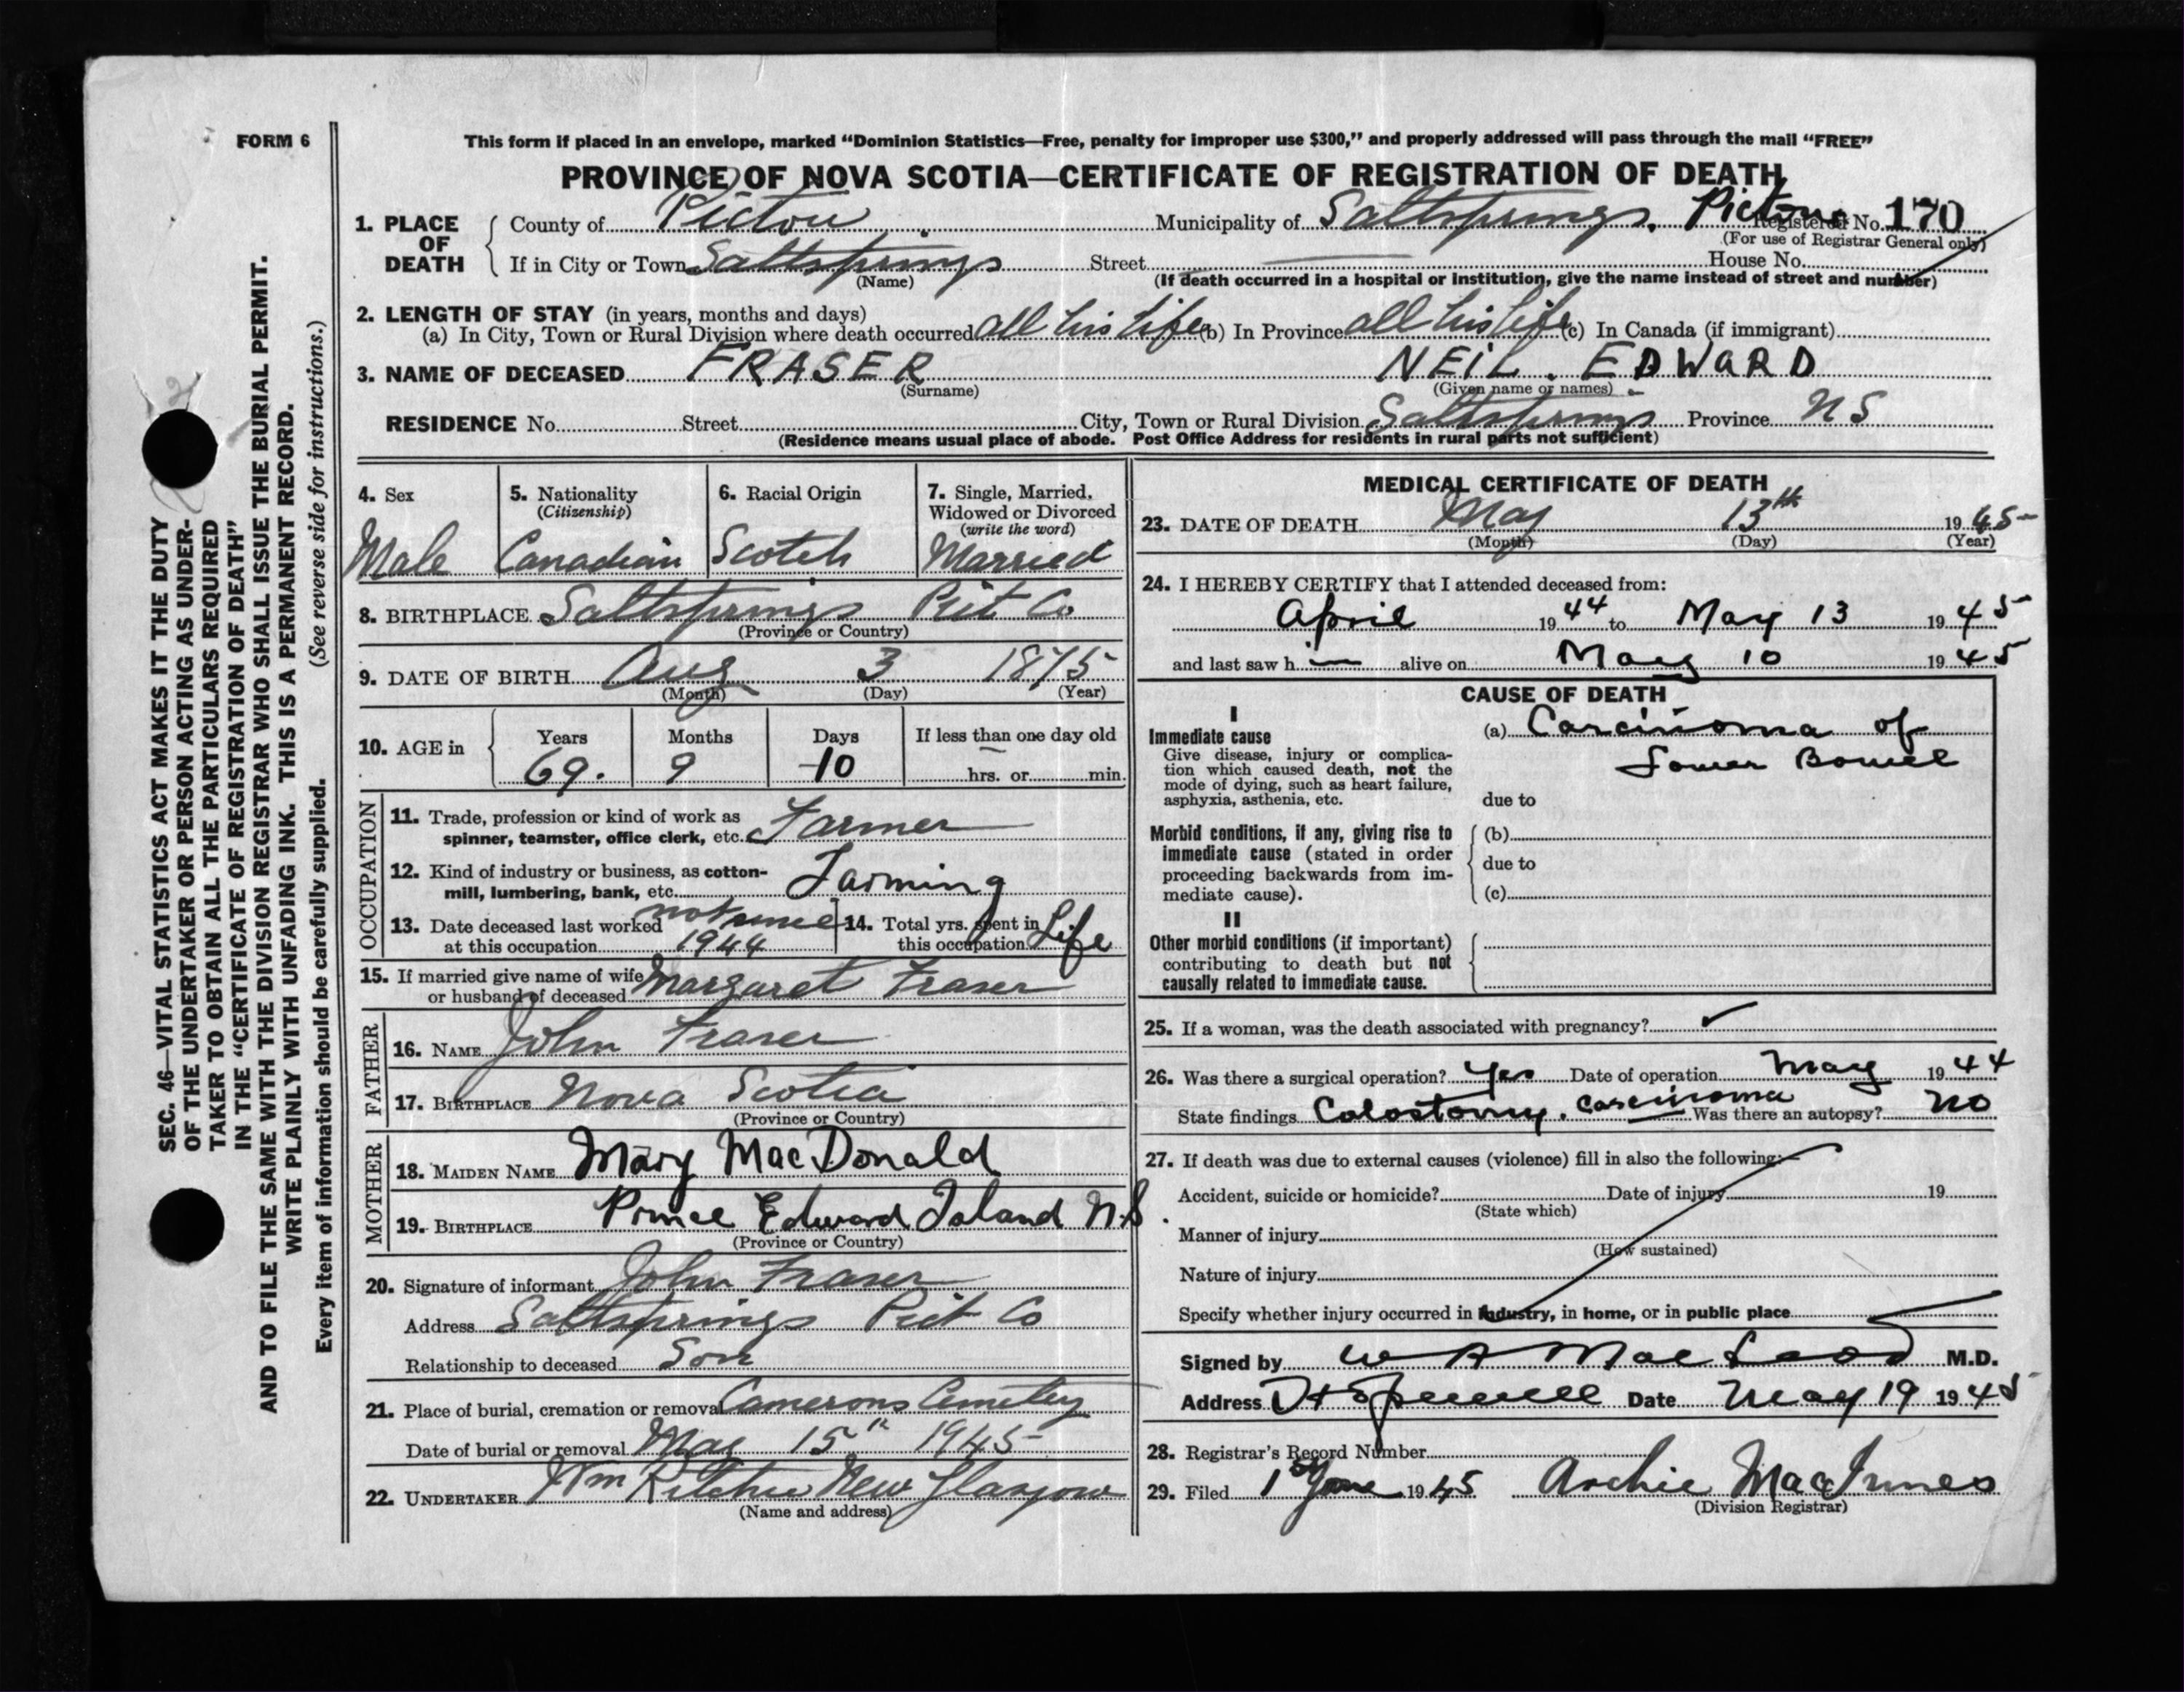 FORM 6
This form if placed in an envelope, marked "Dominion Statistics—Free, penalty for improper use $300," and properly addressed will pass through the mail "FREE"
PROVINCE OF NOVA SCOTIA—CERTIFICATE OF REGISTRATION OF DEATH
1. PLACE OF DEATH
County of Pictou Municipality of Saltsprings. Pictou Registered No. 170
(For use of Registrar General only)
If in City or Town Saltsprings Street House No.
(Name) (If death occurred in a hospital or institution, give the name instead of street and number)
2. LENGTH OF STAY (in years, months and days)
(a) In City, Town or Rural Division where death occurred all his Life (b) In Province all his Life (c) In Canada (if immigrant)
3. NAME OF DECEASED FRASER NEIL . EDWARD
(Surname) (Given name or names)
RESIDENCE No. Street City, Town or Rural Division Saltsprings Province NS
(Residence means usual place of abode. Post Office Address for residents in rural parts not sufficient)
4. Sex
Male
5. Nationality
(Citizenship)
Canadian
6. Racial Origin
Scotch
7. Single, Married, Widowed or Divorced
(write the word)
Married
8. BIRTHPLACE Saltsprings Pict Co.
(Province or Country)
9. DATE OF BIRTH Aug 3 1875
(Month) (Day) (Year)
10. AGE in
Years Months Days If less than one day old
69. 9 10 hrs. or min.
OCCUPATION
11. Trade, profession or kind of work as
spinner, teamster, office clerk, etc. Farmer
12. Kind of industry or business, as cotton-
mill, lumbering, bank, etc. Farming
13. Date deceased last worked not since
at this occupation 1944
14. Total yrs. spent in
this occupation Life
15. If married give name of wife
or husband of deceased Margaret Fraser
FATHER
16. NAME John Fraser
17. BIRTHPLACE Nova Scotia
(Province or Country)
MOTHER
18. MAIDEN NAME Mary MacDonald
19. BIRTHPLACE Prince Edward Island N.S.
(Province or Country)
20. Signature of informant John Fraser
Address Saltsprings Pict Co
Relationship to deceased Son
21. Place of burial, cremation or removal Camerons Cemetery
Date of burial or removal May 15th 1945
22. UNDERTAKER Wm Ritchie New Glasgow
(Name and address)
MEDICAL CERTIFICATE OF DEATH
23. DATE OF DEATH May 13th 1945
(Month) (Day) (Year)
24. I HEREBY CERTIFY that I attended deceased from:
April 1944 to May 13 1945
and last saw him alive on May 10 1945
CAUSE OF DEATH
I
Immediate cause
Give disease, injury or complica-
tion which caused death, not the
mode of dying, such as heart failure,
asphyxia, asthenia, etc.
(a) Carcinoma of
Lower Bowel
due to
Morbid conditions, if any, giving rise to
immediate cause (stated in order
proceeding backwards from im-
mediate cause).
(b)
due to
(c)
II
Other morbid conditions (if important)
contributing to death but not
causally related to immediate cause.
25. If a woman, was the death associated with pregnancy?
26. Was there a surgical operation? Yes Date of operation May 1944
State findings Colostomy. Carcinoma Was there an autopsy? No
27. If death was due to external causes (violence) fill in also the following:
Accident, suicide or homicide? Date of injury 19
(State which)
Manner of injury
(How sustained)
Nature of injury
Specify whether injury occurred in industry, in home, or in public place
Signed by W A MacLeod M.D.
Address Hopewell Date May 19 1945
28. Registrar's Record Number
29. Filed 1st June 1945 Archie MacInnes
(Division Registrar)
SEC. 46—VITAL STATISTICS ACT MAKES IT THE DUTY
OF THE UNDERTAKER OR PERSON ACTING AS UNDER-
TAKER TO OBTAIN ALL THE PARTICULARS REQUIRED
IN THE "CERTIFICATE OF REGISTRATION OF DEATH"
AND TO FILE THE SAME WITH THE DIVISION REGISTRAR WHO SHALL ISSUE THE BURIAL PERMIT.
WRITE PLAINLY WITH UNFADING INK. THIS IS A PERMANENT RECORD.
Every item of information should be carefully supplied. (See reverse side for instructions.)